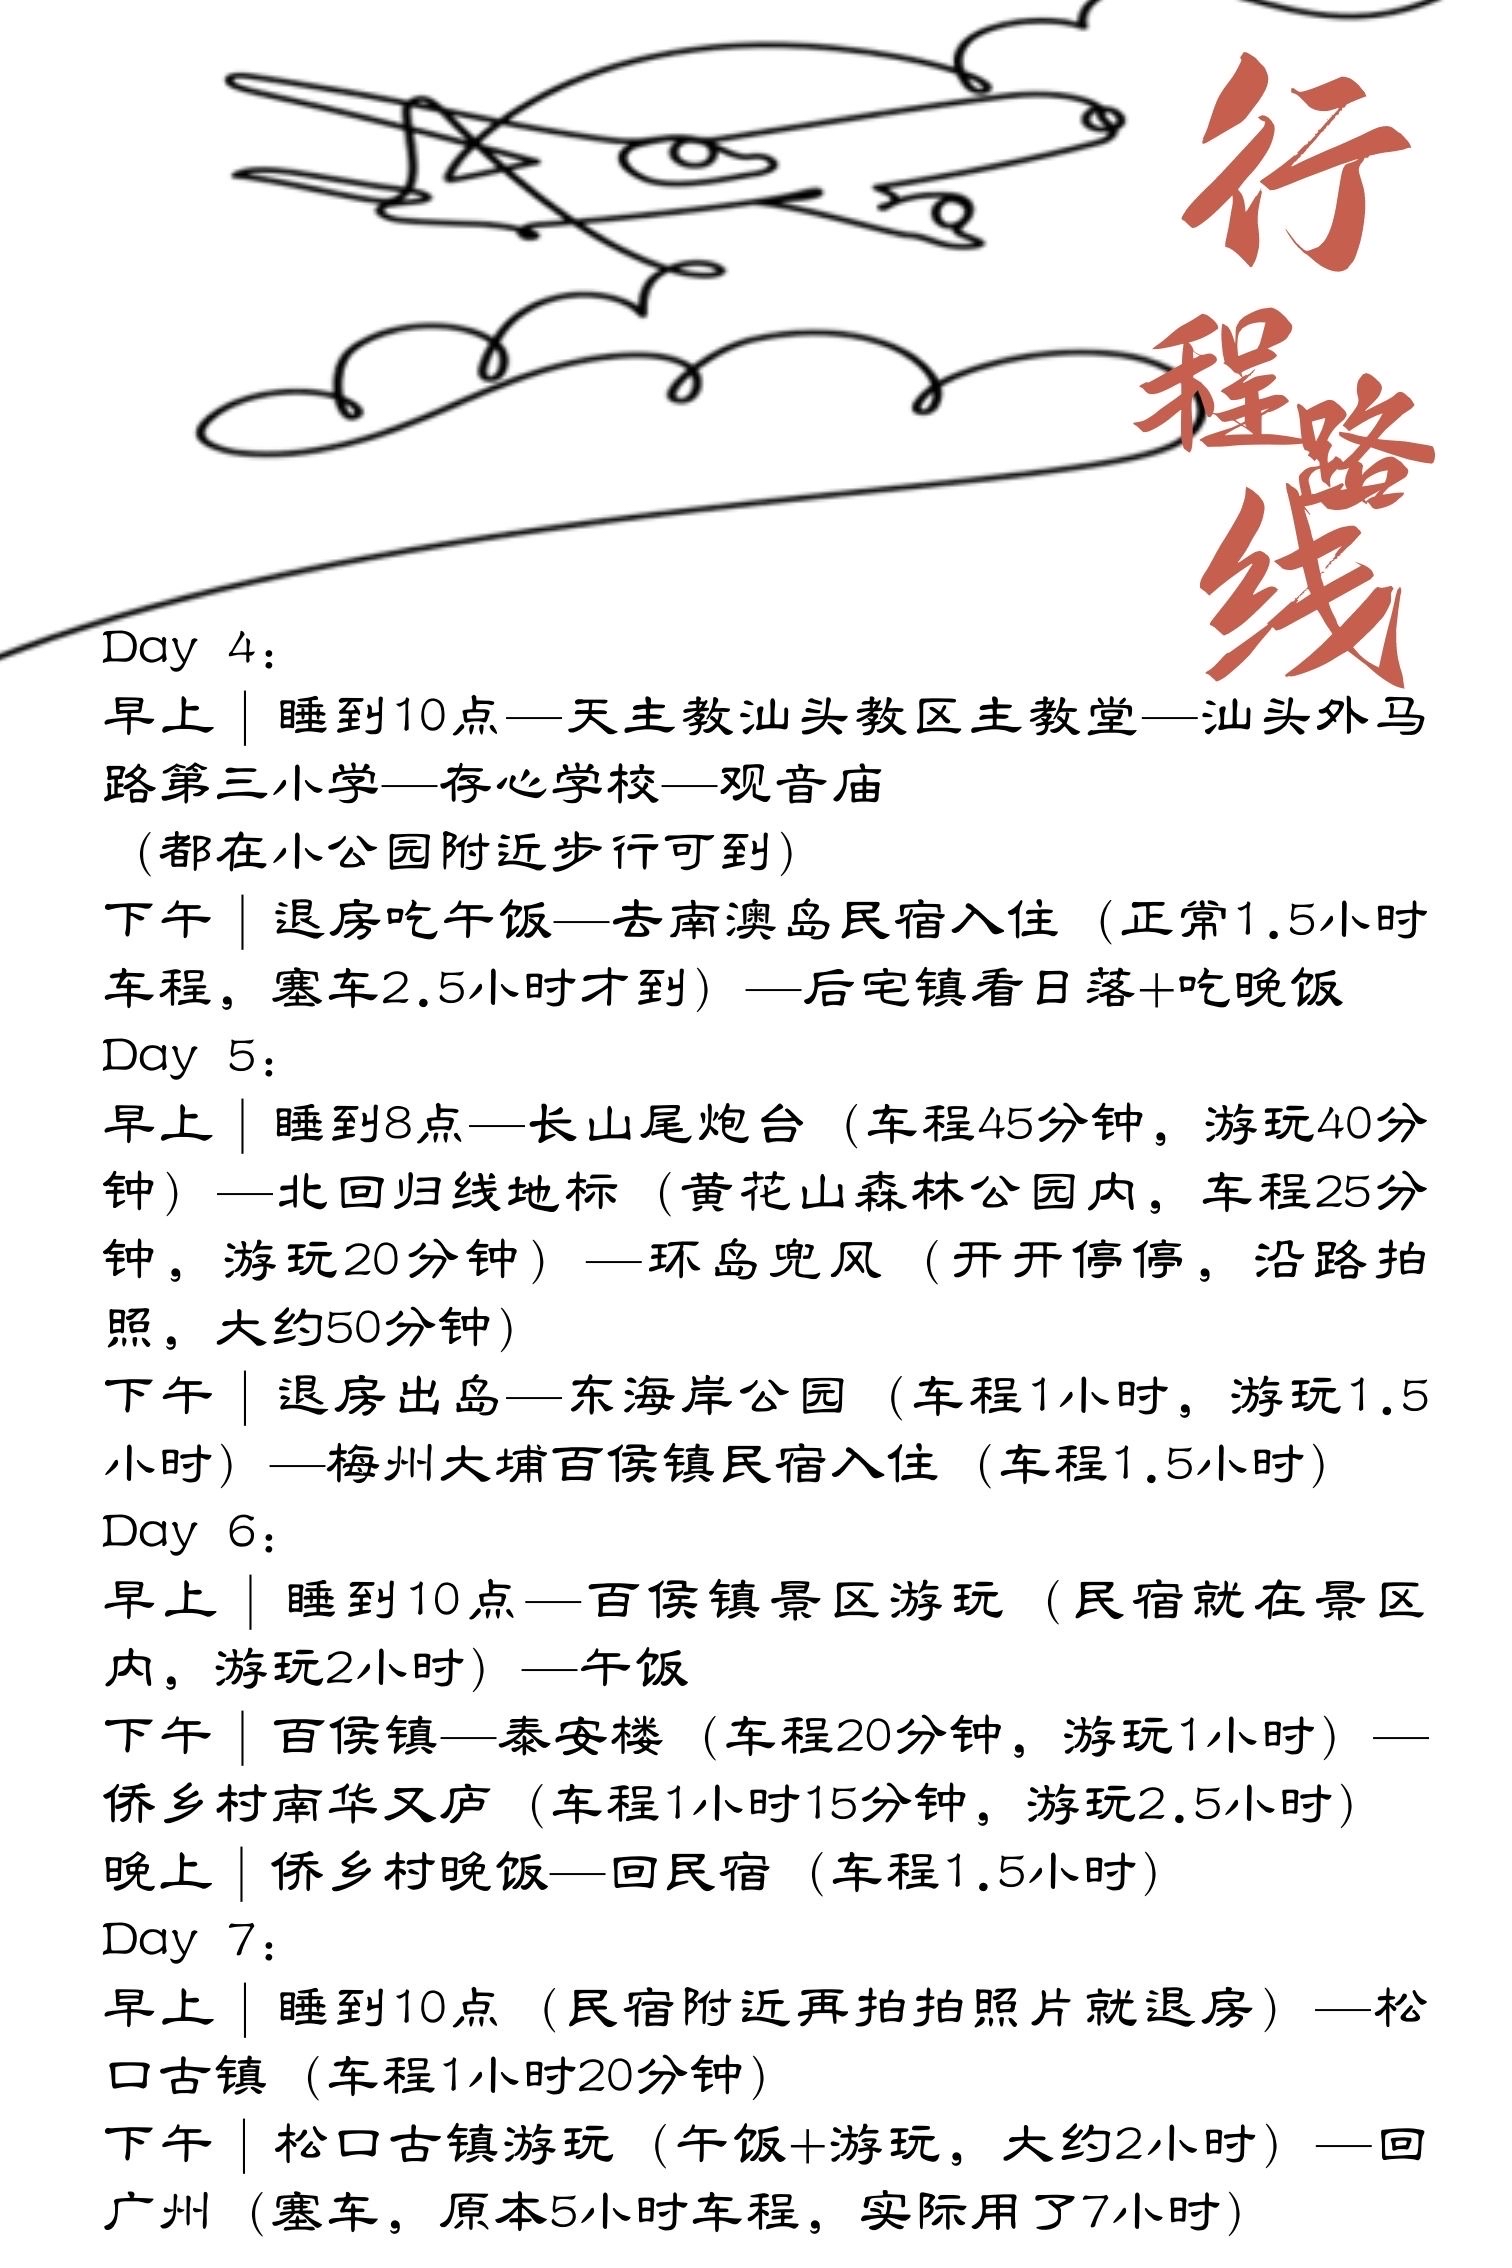 行程路线
Day 4：
早上｜睡到10点—天主教汕头教区主教堂—汕头外马
路第三小学—存心学校—观音庙
（都在小公园附近步行可到）
下午｜退房吃午饭—去南澳岛民宿入住（正常1.5小时
车程，塞车2.5小时才到）—后宅镇看日落+吃晚饭
Day 5：
早上｜睡到8点—长山尾炮台（车程45分钟，游玩40分
钟）—北回归线地标（黄花山森林公园内，车程25分
钟，游玩20分钟）—环岛兜风（开开停停，沿路拍
照，大约50分钟）
下午｜退房出岛—东海岸公园（车程1小时，游玩1.5
小时）—梅州大埔百侯镇民宿入住（车程1.5小时）
Day 6：
早上｜睡到10点—百侯镇景区游玩（民宿就在景区
内，游玩2小时）—午饭
下午｜百侯镇—泰安楼（车程20分钟，游玩1小时）—
侨乡村南华又庐（车程1小时15分钟，游玩2.5小时）
晚上｜侨乡村晚饭—回民宿（车程1.5小时）
Day 7：
早上｜睡到10点（民宿附近再拍拍照片就退房）—松
口古镇（车程1小时20分钟）
下午｜松口古镇游玩（午饭+游玩，大约2小时）—回
广州（塞车，原本5小时车程，实际用了7小时）